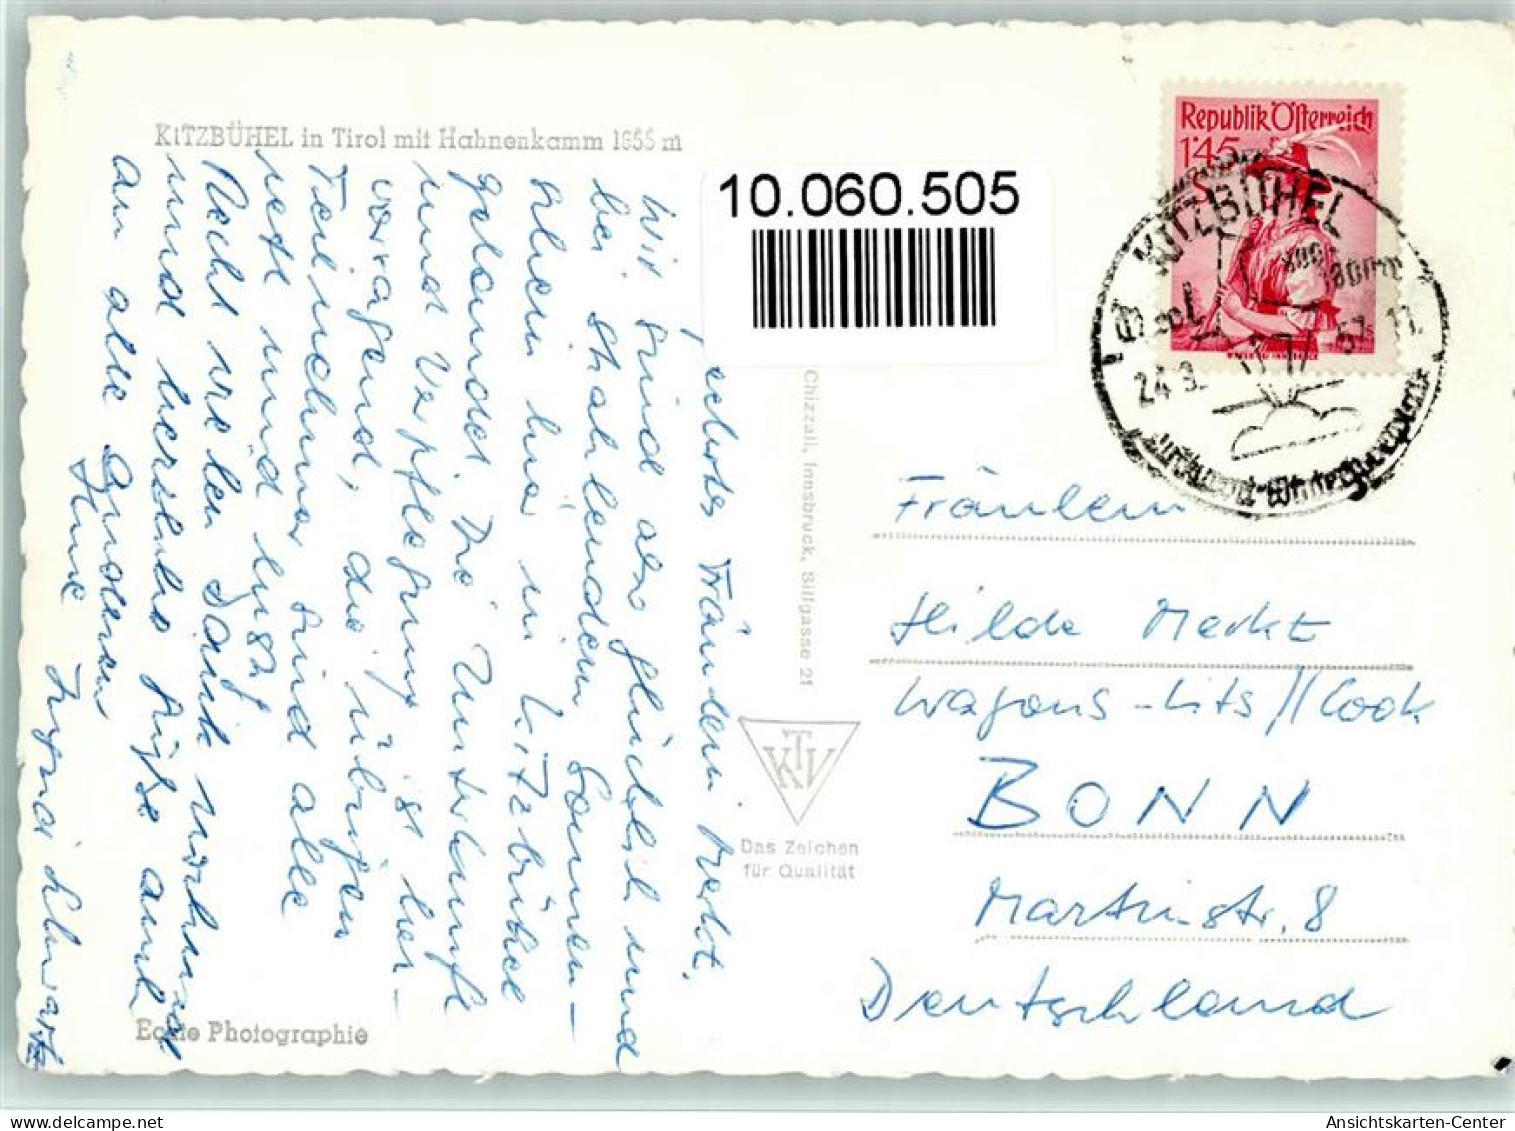 KITZBÜHEL in Tirol mit Hahnenkamm 1655 m
10.060.505
Republik Österreich
1'45
KITZBÜHEL
800-
1800m
24.3.
57.11
Luftkurort-Wintersportplatz
Chizzali, Innsbruck, Sillgasse 21
KTV
Das Zeichen
für Qualität
Echte Photographie
Fräulein
Hilde Merkt
Wagons-Lits//Cook
BONN
Martinstr. 8
Deutschland
Fräulein Merkt.
Wir sind alle glücklich und
bei strahlendem Sonnen-
schein hier in Kitzbühel
gelandet. Die Unterkunft
und Verpflegung ist her-
vorragend, die übrigen
Teilnehmer sind alle
nett und lustig.
Recht vielen Dank nochmal
und herzliche Grüße auch
an alle Anderen
Ihre
Ansichtskarten-Center